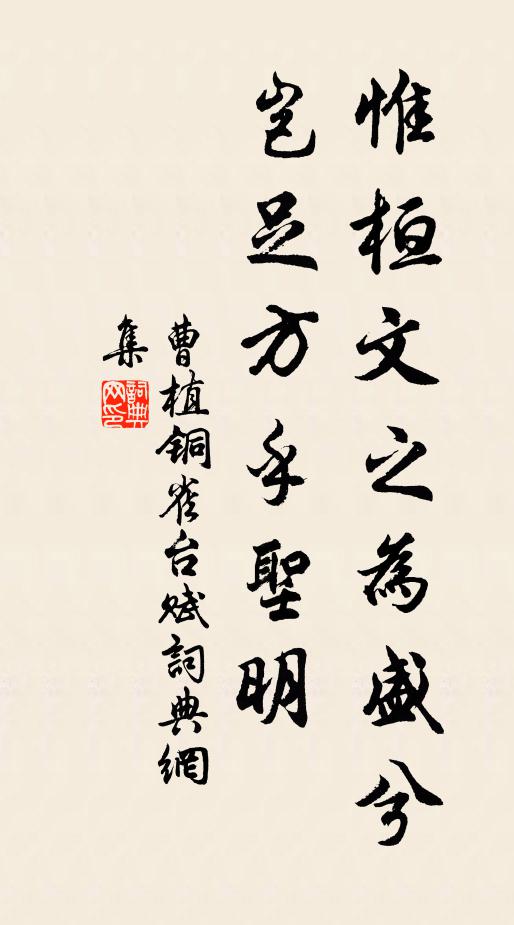 惟桓文之為盛兮
豈足方乎聖明
曹植銅雀台賦詞典網
集
詞典
网印